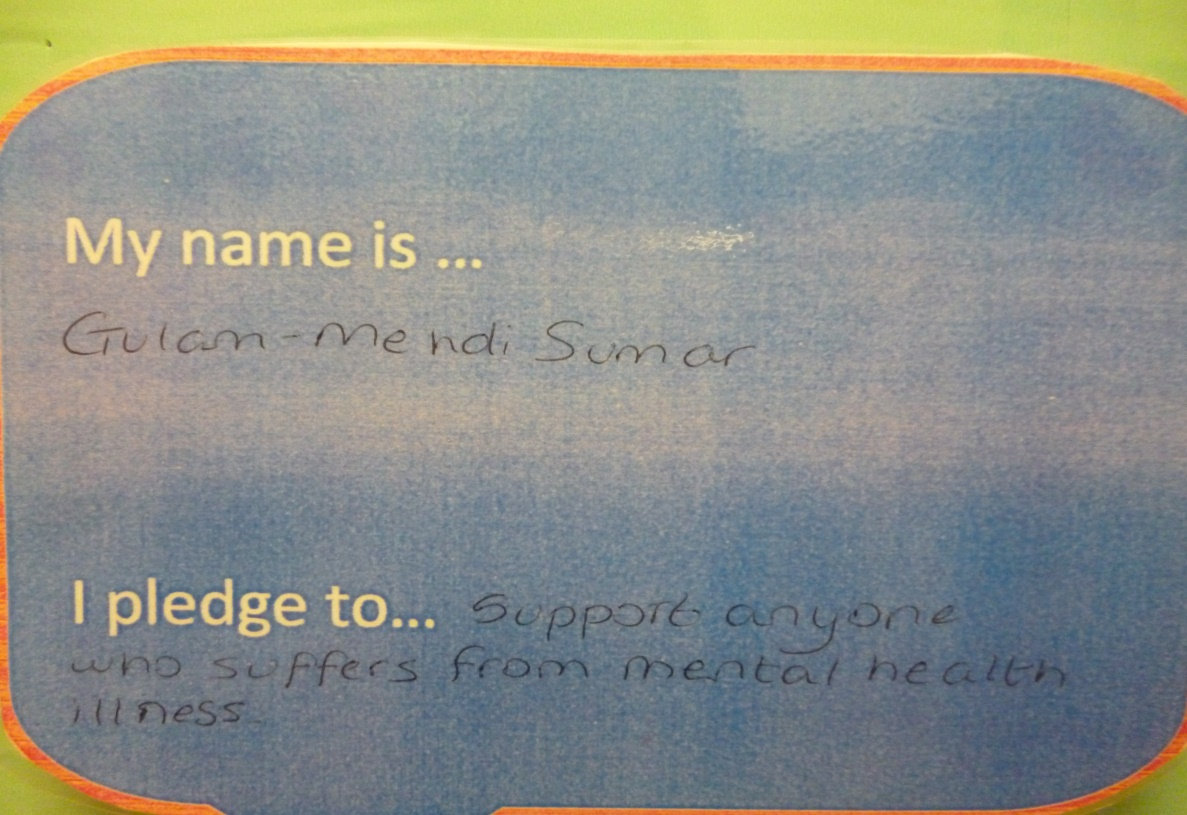 My name is ...
Gulam-Mendi Sumar
I pledge to... Support anyone
who suffers from mental health
illness